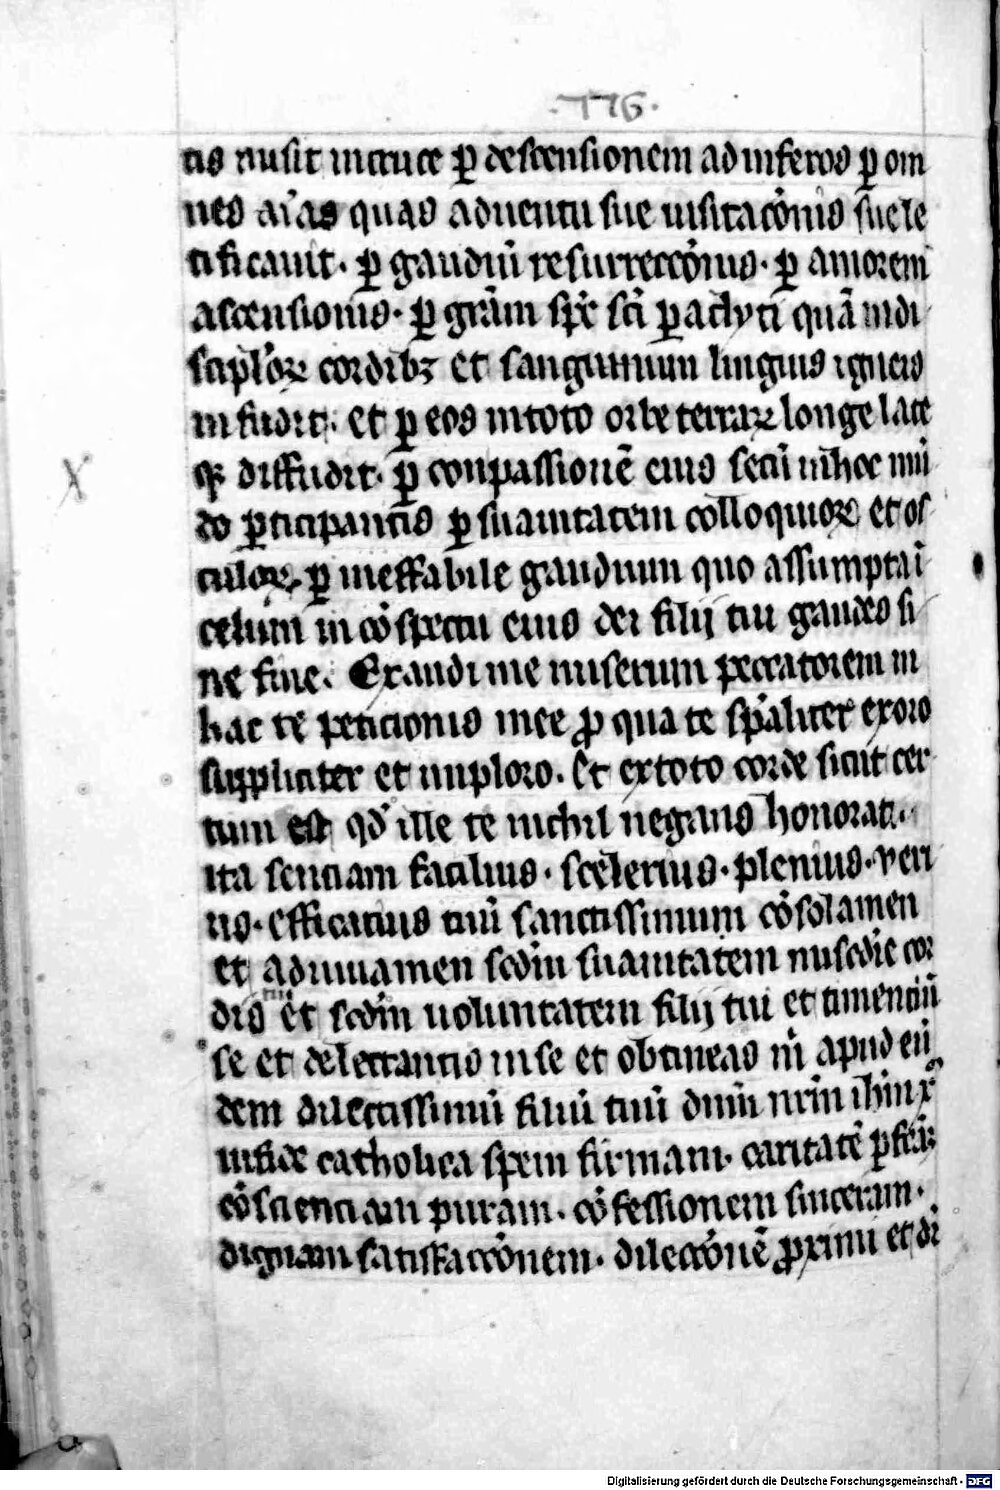 .176.
tis misit in cruce ꝑ descensionem ad inferos ꝑ om
nes aīas quas aduentu sue uisitacōnis sue le
tificauit. ꝑ gaudiū resurreccōnis. ꝑ amorem
ascensionis. ꝑ grām spc̄ sc̄i ꝑaclyti quā in di
scipl'oꝝ cordibꝫ et sanguinum linguis igneis
in fudit. et ꝑ eos in toto orbe terraꝝ longe late
qꝫ diffudit. ꝑ conpassionē eius secū in hoc mū
do ꝑticipantis ꝑ suauitatem colloquioꝝ et os
culoꝝ. ꝑ ineffabile gaudium quo assumpta ī
celum in cōspectu eius dei filij tui gaudes si
ne fine. Exaudi me miserum peccatorem in
hac re peticionis mee ꝓ qua te spāliter exoro
suppliciter et imploro. Et ex toto corde sicut cer
tum est qd' ille te nichil negans honorat.
ita senciam facilius. scelerius. plenius. veri
us. efficatius tuū sanctissimum cōsolamen
et adiuuamen scdm̄ suauitatem misc̄die cor
dis tui et scdm̄ uoluntatem filij tui et timenciū
se et delectantis in se et obtineas m̄ apud eū
dem dilectissimū filiū tuū dn̄m nrm̄ ihm̄ xp̄
in fide catholica spem firmam. caritatē ꝑfcāꝫ
cōscienciam puram. cōfessionem sinceram.
dignam satisfaccōnem. dileccōnē ꝓximi et di
X
Digitalisierung gefördert durch die Deutsche Forschungsgemeinschaft - DFG